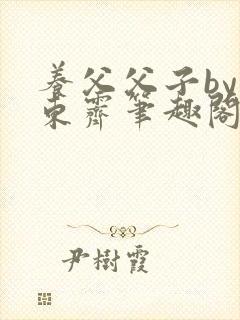 養父父子by
東霽筆趣閣
尹樹霞